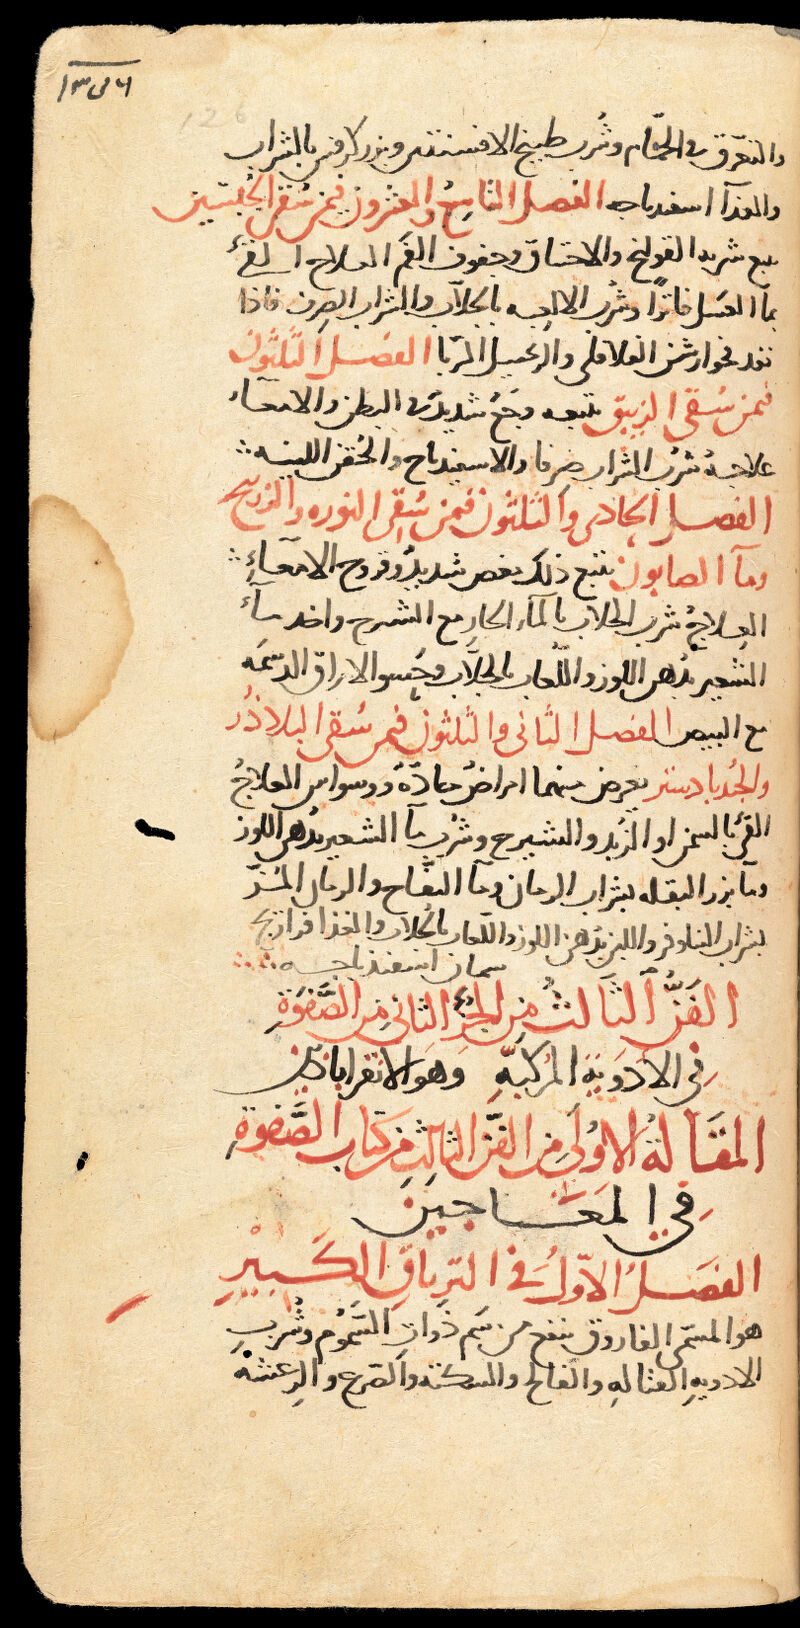 126
والتعرق في الحمّام وشُرب طبيخ الافسنتين وبزر كرفس بالشراب
والغذآ اسفيدباجه الفصل التاسِعُ والعشرون فيمن سُقى الجبسين
يتبع شربه القولنج والاختناق وجفوف الفَم العلاج القئ
بمآ العسل فاترًا وشُرب الالعبه بالجلّاب والشراب الصرف فاذا
نفد فجوارشن الفلافلى والزنجبيل المربّا الفصل الثلثون
فيمن سُقى الزيبق يتبعه وجَعٌ شديد في البطن والامعآء
علاجهُ شُرب الشراب صِرفا والاسفيدباج والحُقن اللينه
الفصل الحادى والثلثون فيمن سُقِى النوره والزرنيخ
ومآ الصابون يتبع ذلك مغص شديدٌ وقروح الامعآءِ
العِلاجُ شرب الجلاب بالمآء الحارِ مع الشيرج واخد مآء
الشعير بدُهن اللوز واللّعاب بالجلّاب وحَسو الامراق الدسمَه
مع البيض الفصل الثانى والثلثون فيمن سُقى البلاذُر
والجُندبادستر يعرض منهما امراضٌ حادّةٌ ووسواس العلاجُ
القئ بالسمن او الزُبد والشيرج وشُرب مآ الشعير بدُهن اللوز
ومآ بزر البقله بشراب الرمان ومآ التفّاح والرمان المُزّ
بشراب النيلوفر واللبن بدُهن اللوز واللّعاب بالجُلاب والغذا فراريج
سمان اسفيذباجه
الفَنُّ الثَالثُ مِن الجزءِ الثاني مِن الصَّفوَةِ
فِي الادَويَةِ المركبَّهِ وَهوَ الاقراباذين
المقَالةُ الاوُلَى مِن الفَنّ الثالِثِ مِن كتَاب الصَّفوةِ
فِي المعَاجين
الفصَلُ الاوّلُ في الترياق الكَبيْرِ
هو المسمّى الفاروق ينفع من سَم ذَوات السُّموُم وشُربِ
الادويهِ القتالهِ والفالج والسكتة والصَرع والرعشه